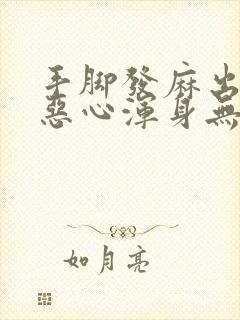 手脚發麻出
惡心渾身無
如月亮